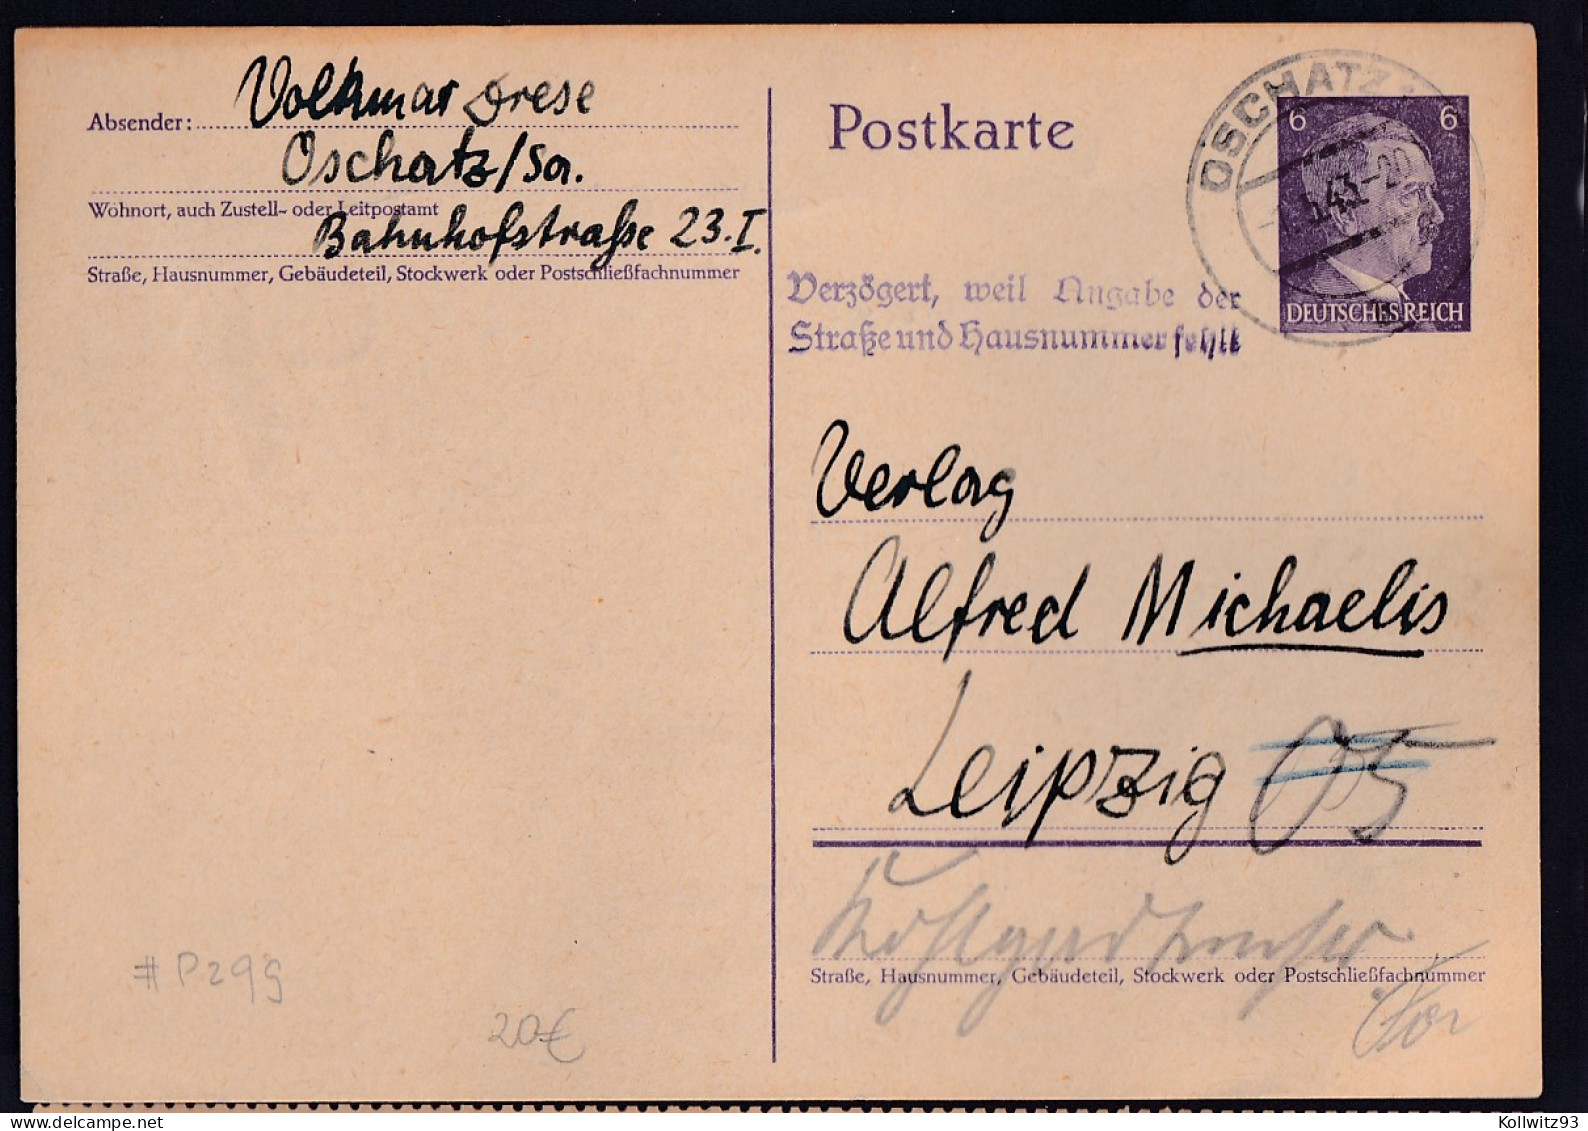 Absender:
Volkmar Drese
Oschatz/Sa.
Wohnort, auch Zustell- oder Leitpostamt
Bahnhofstraße 23.I.
Straße, Hausnummer, Gebäudeteil, Stockwerk oder Postschließfachnummer
Postkarte
OSCHATZ
5.43.-20
6 6
DEUTSCHES REICH
Verzögert, weil Angabe der
Straße und Hausnummer fehlt
Verlag
Alfred Michaelis
Leipzig O5
Straße, Hausnummer, Gebäudeteil, Stockwerk oder Postschließfachnummer
# P299
20€
delcampe.net
Kollwitz93